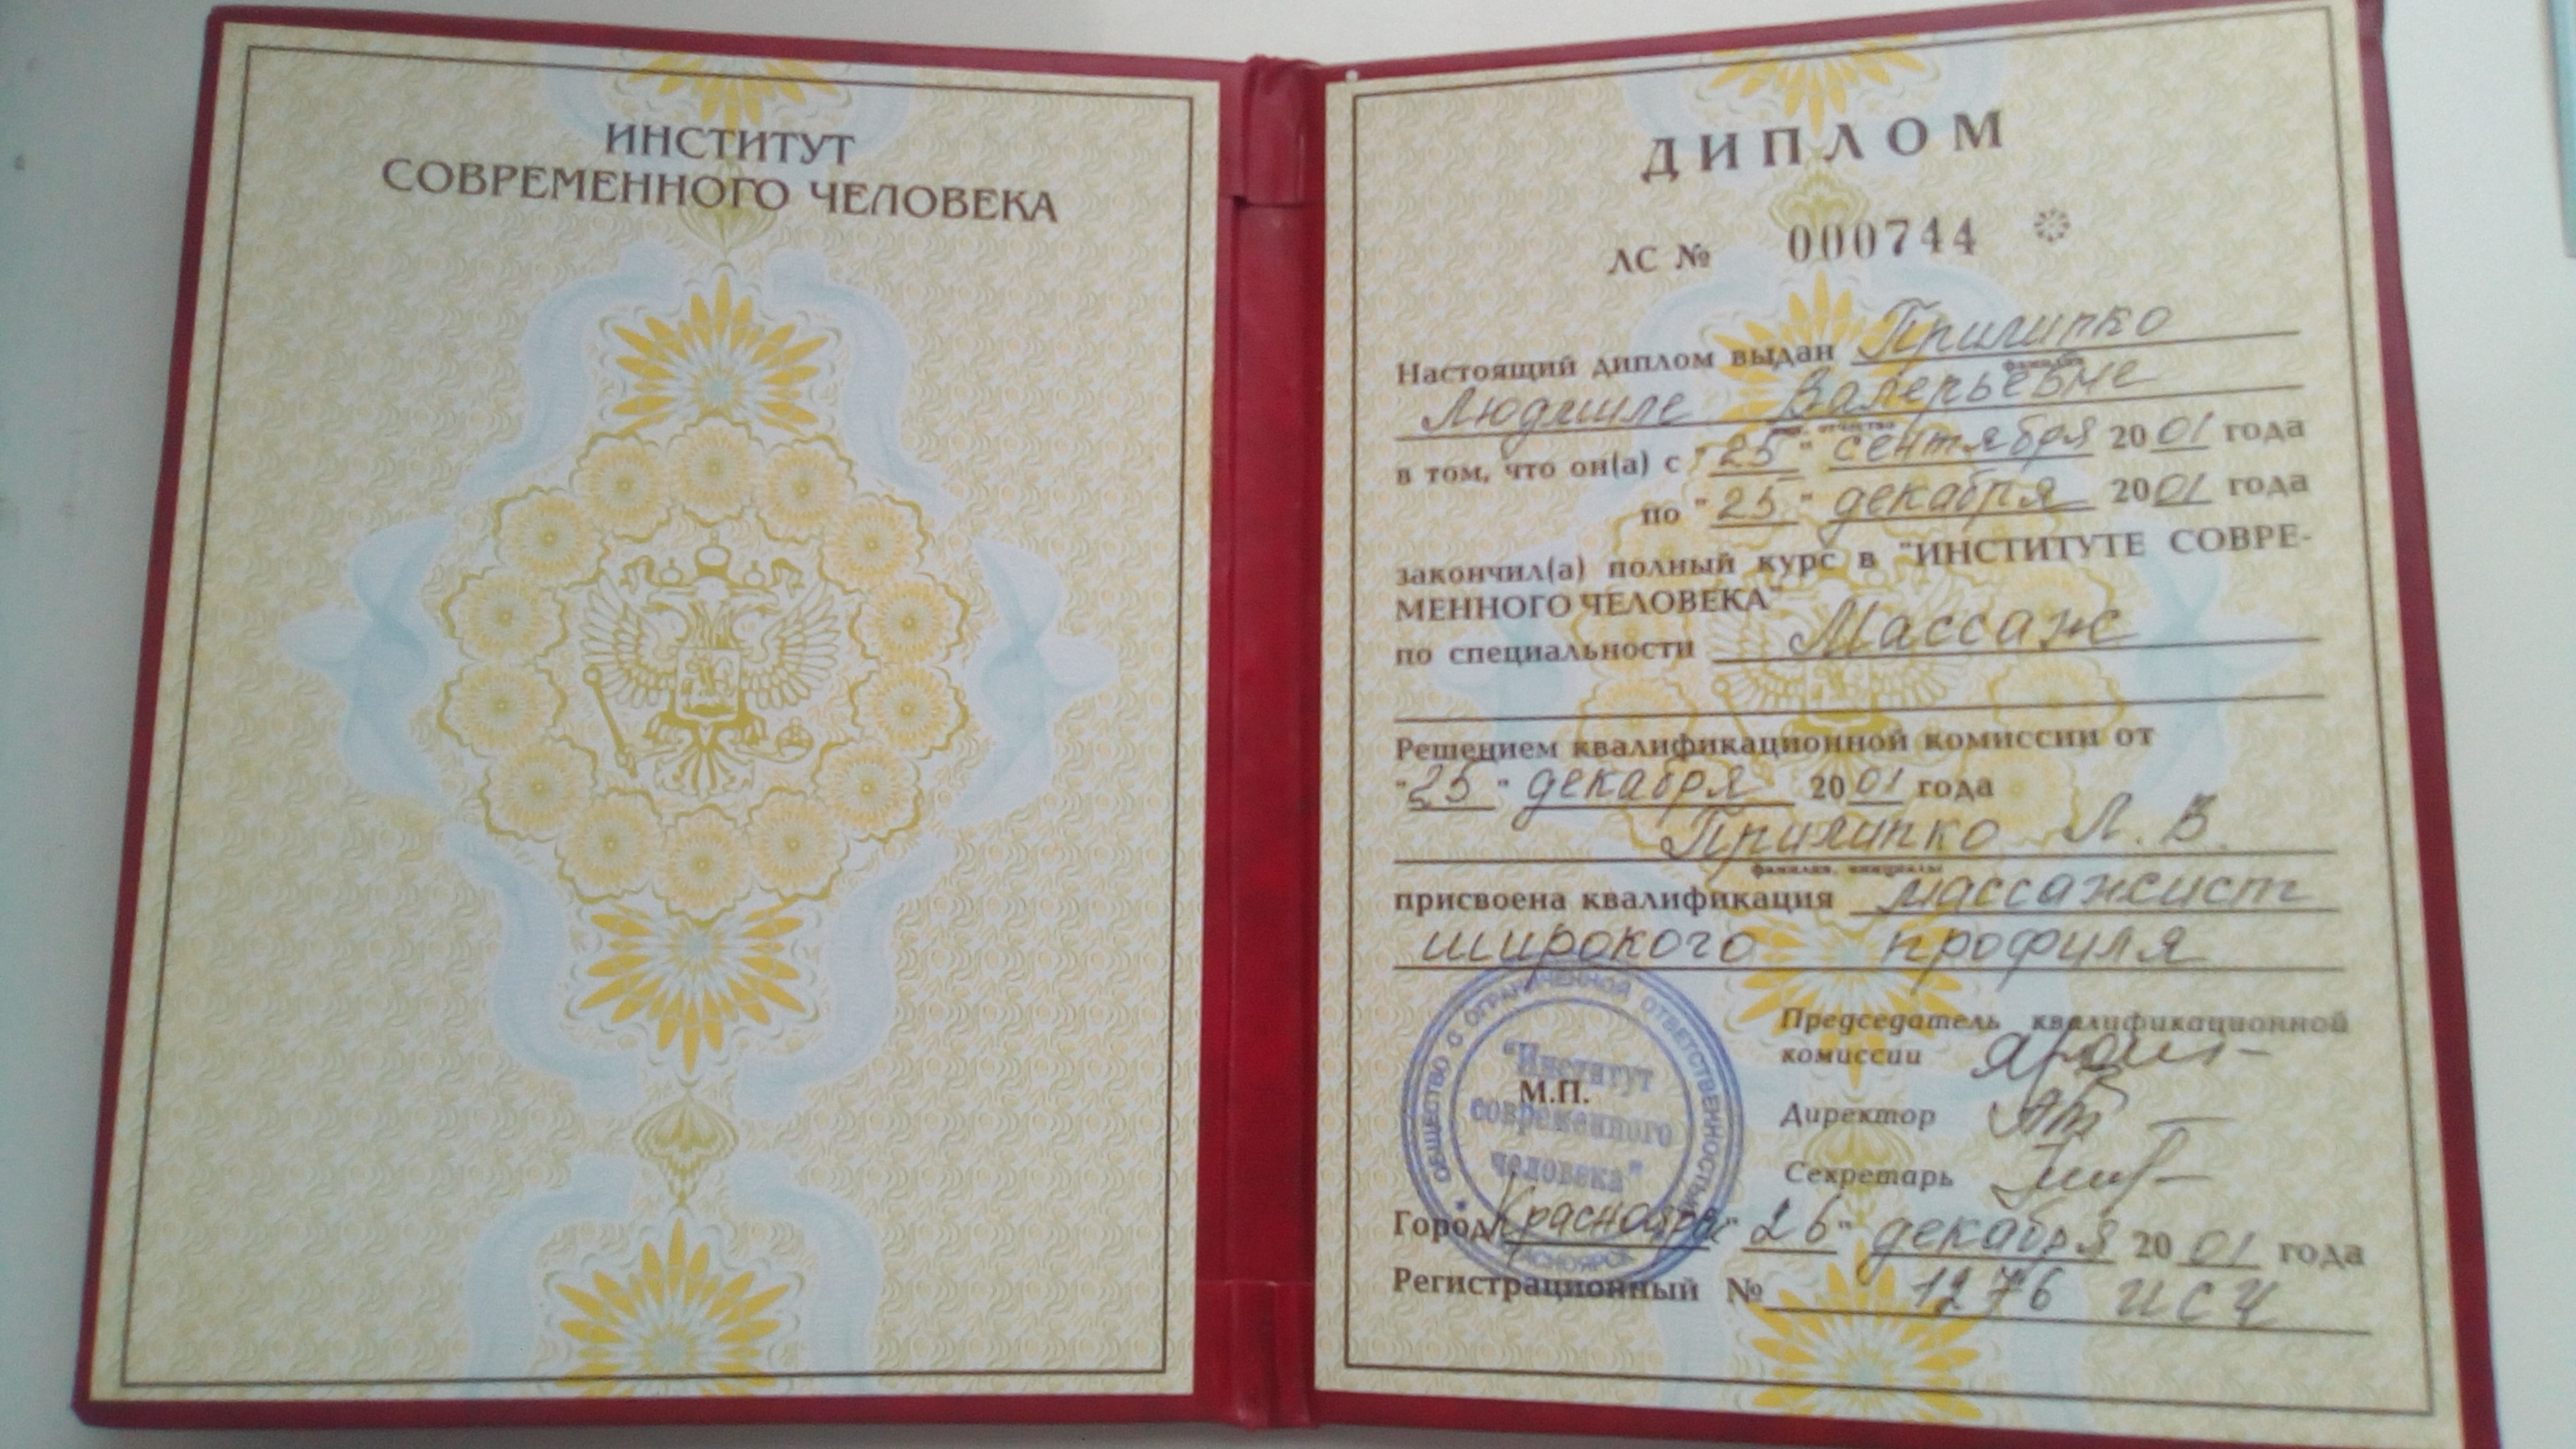 ИНСТИТУТ
СОВРЕМЕННОГО ЧЕЛОВЕКА
ДИПЛОМ
ЛС № 000744
Настоящий диплом выдан Прилипко
фамилия
Людмиле Валерьевне
имя, отчество
в том, что он(а) с "25" сентября 2001 года
по "25" декабря 2001 года
закончил(а) полный курс в "ИНСТИТУТЕ СОВРЕ-
МЕННОГО ЧЕЛОВЕКА"
по специальности Массаж
Решением квалификационной комиссии от
"25" декабря 2001 года
Прилипко Л. В.
фамилия, инициалы
присвоена квалификация массажист
широкого профиля
Председатель квалификационной
комиссии
Директор
Секретарь
М.П.
ОБЩЕСТВО С ОГРАНИЧЕННОЙ ОТВЕТСТВЕННОСТЬЮ
"Институт
современного
человека"
КРАСНОЯРСК
Город Красноярск "26" декабря 2001 года
Регистрационный № 1276 ИСЧ